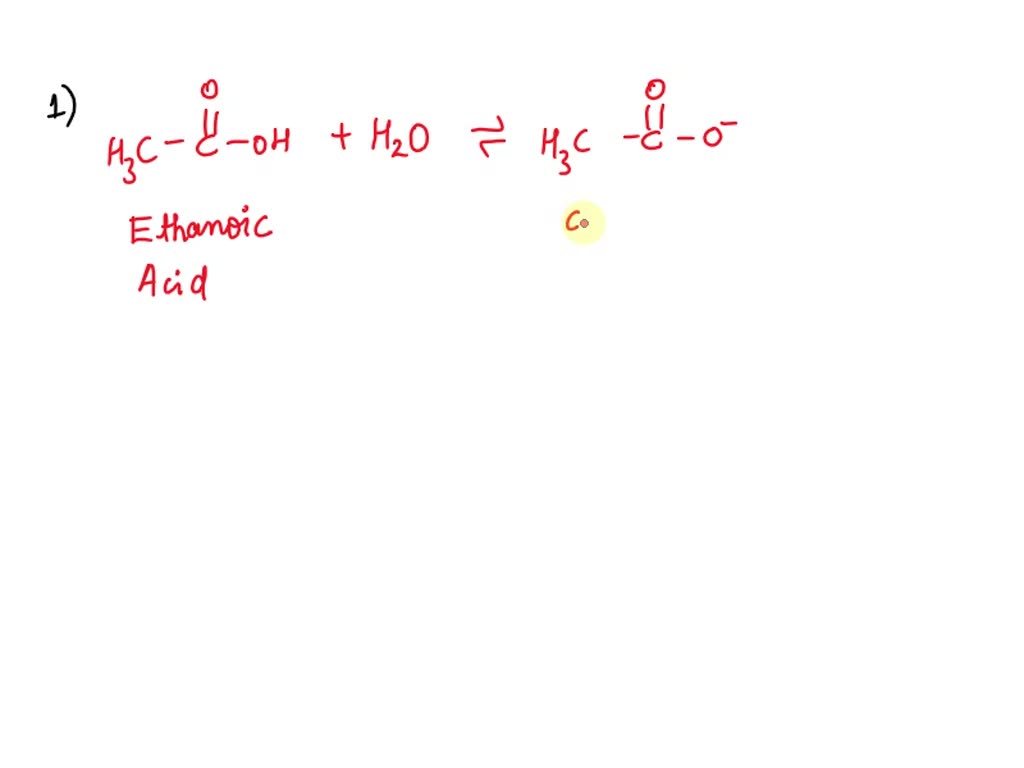 1)
O O
H3C - C - OH + H2O ⇌ H3C - C - O⁻
Ethanoic C
Acid